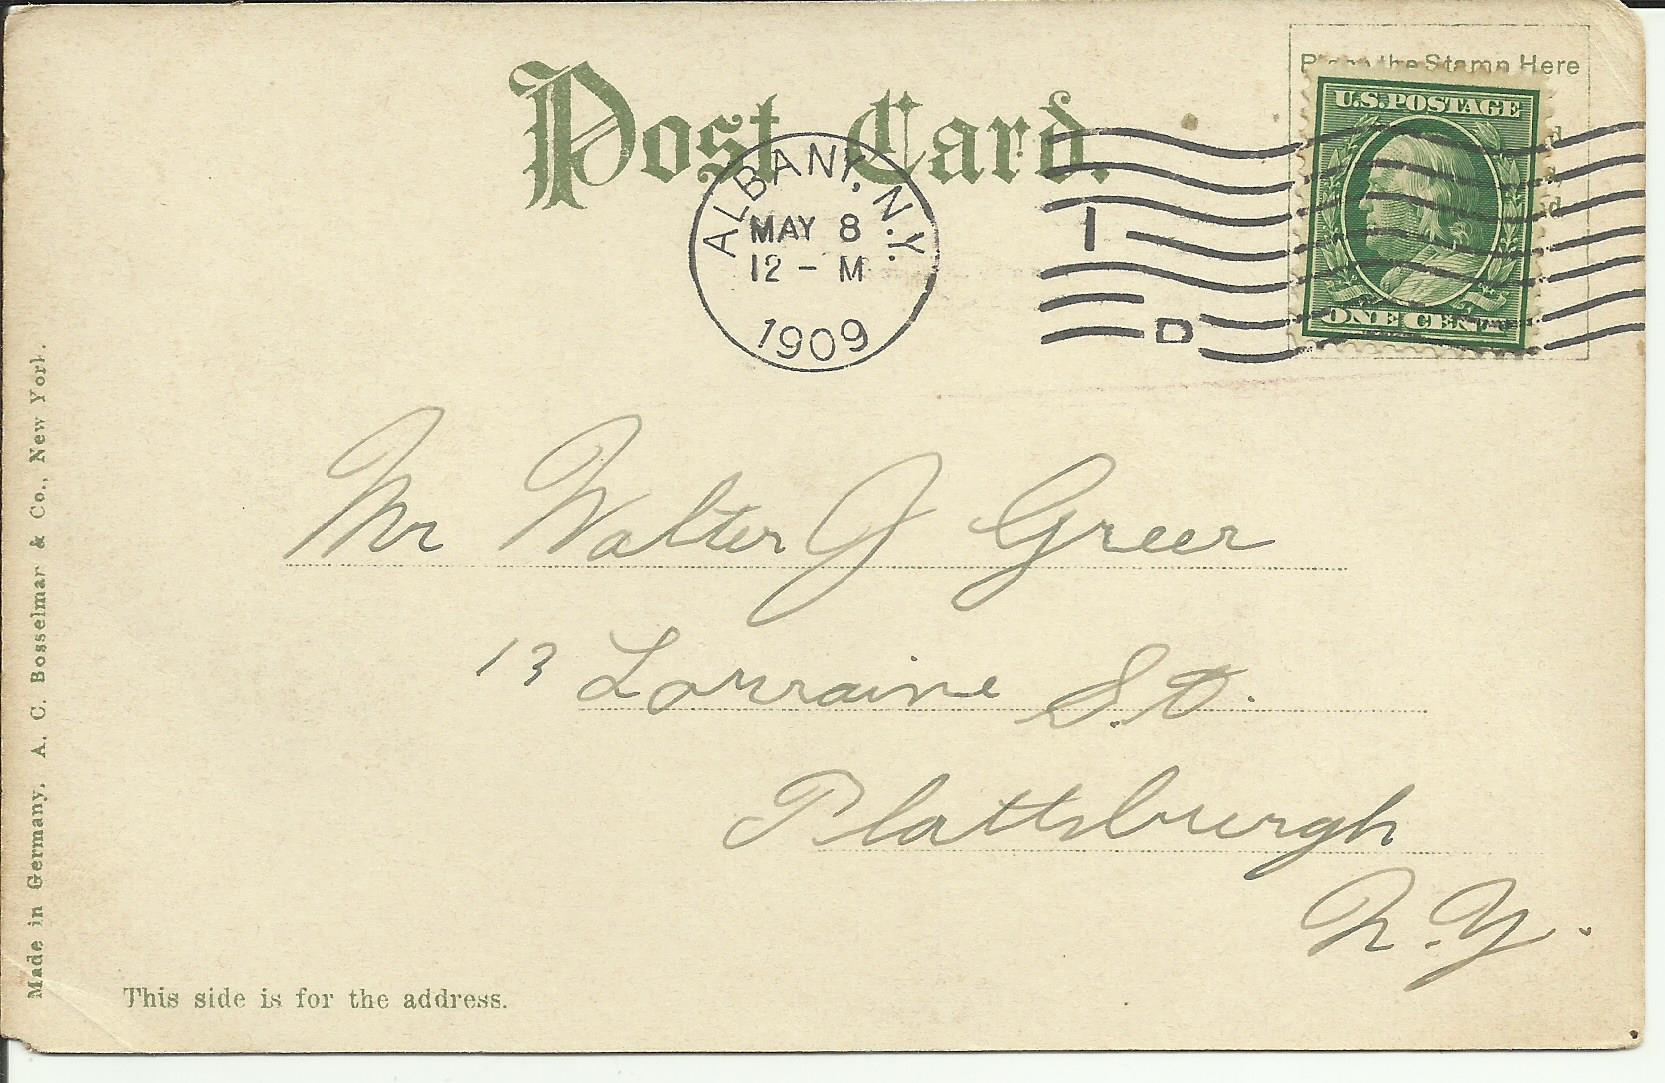 Post Card.
Place the Stamp Here
U.S. POSTAGE
ONE CENT
ALBANY, N.Y.
MAY 8
12 - M
1909
1
D
Mr Walter J Greer
13 Lorraine St.
Plattsburgh
N.Y.
This side is for the address.
Made in Germany. A. C. Bosselman & Co., New York.